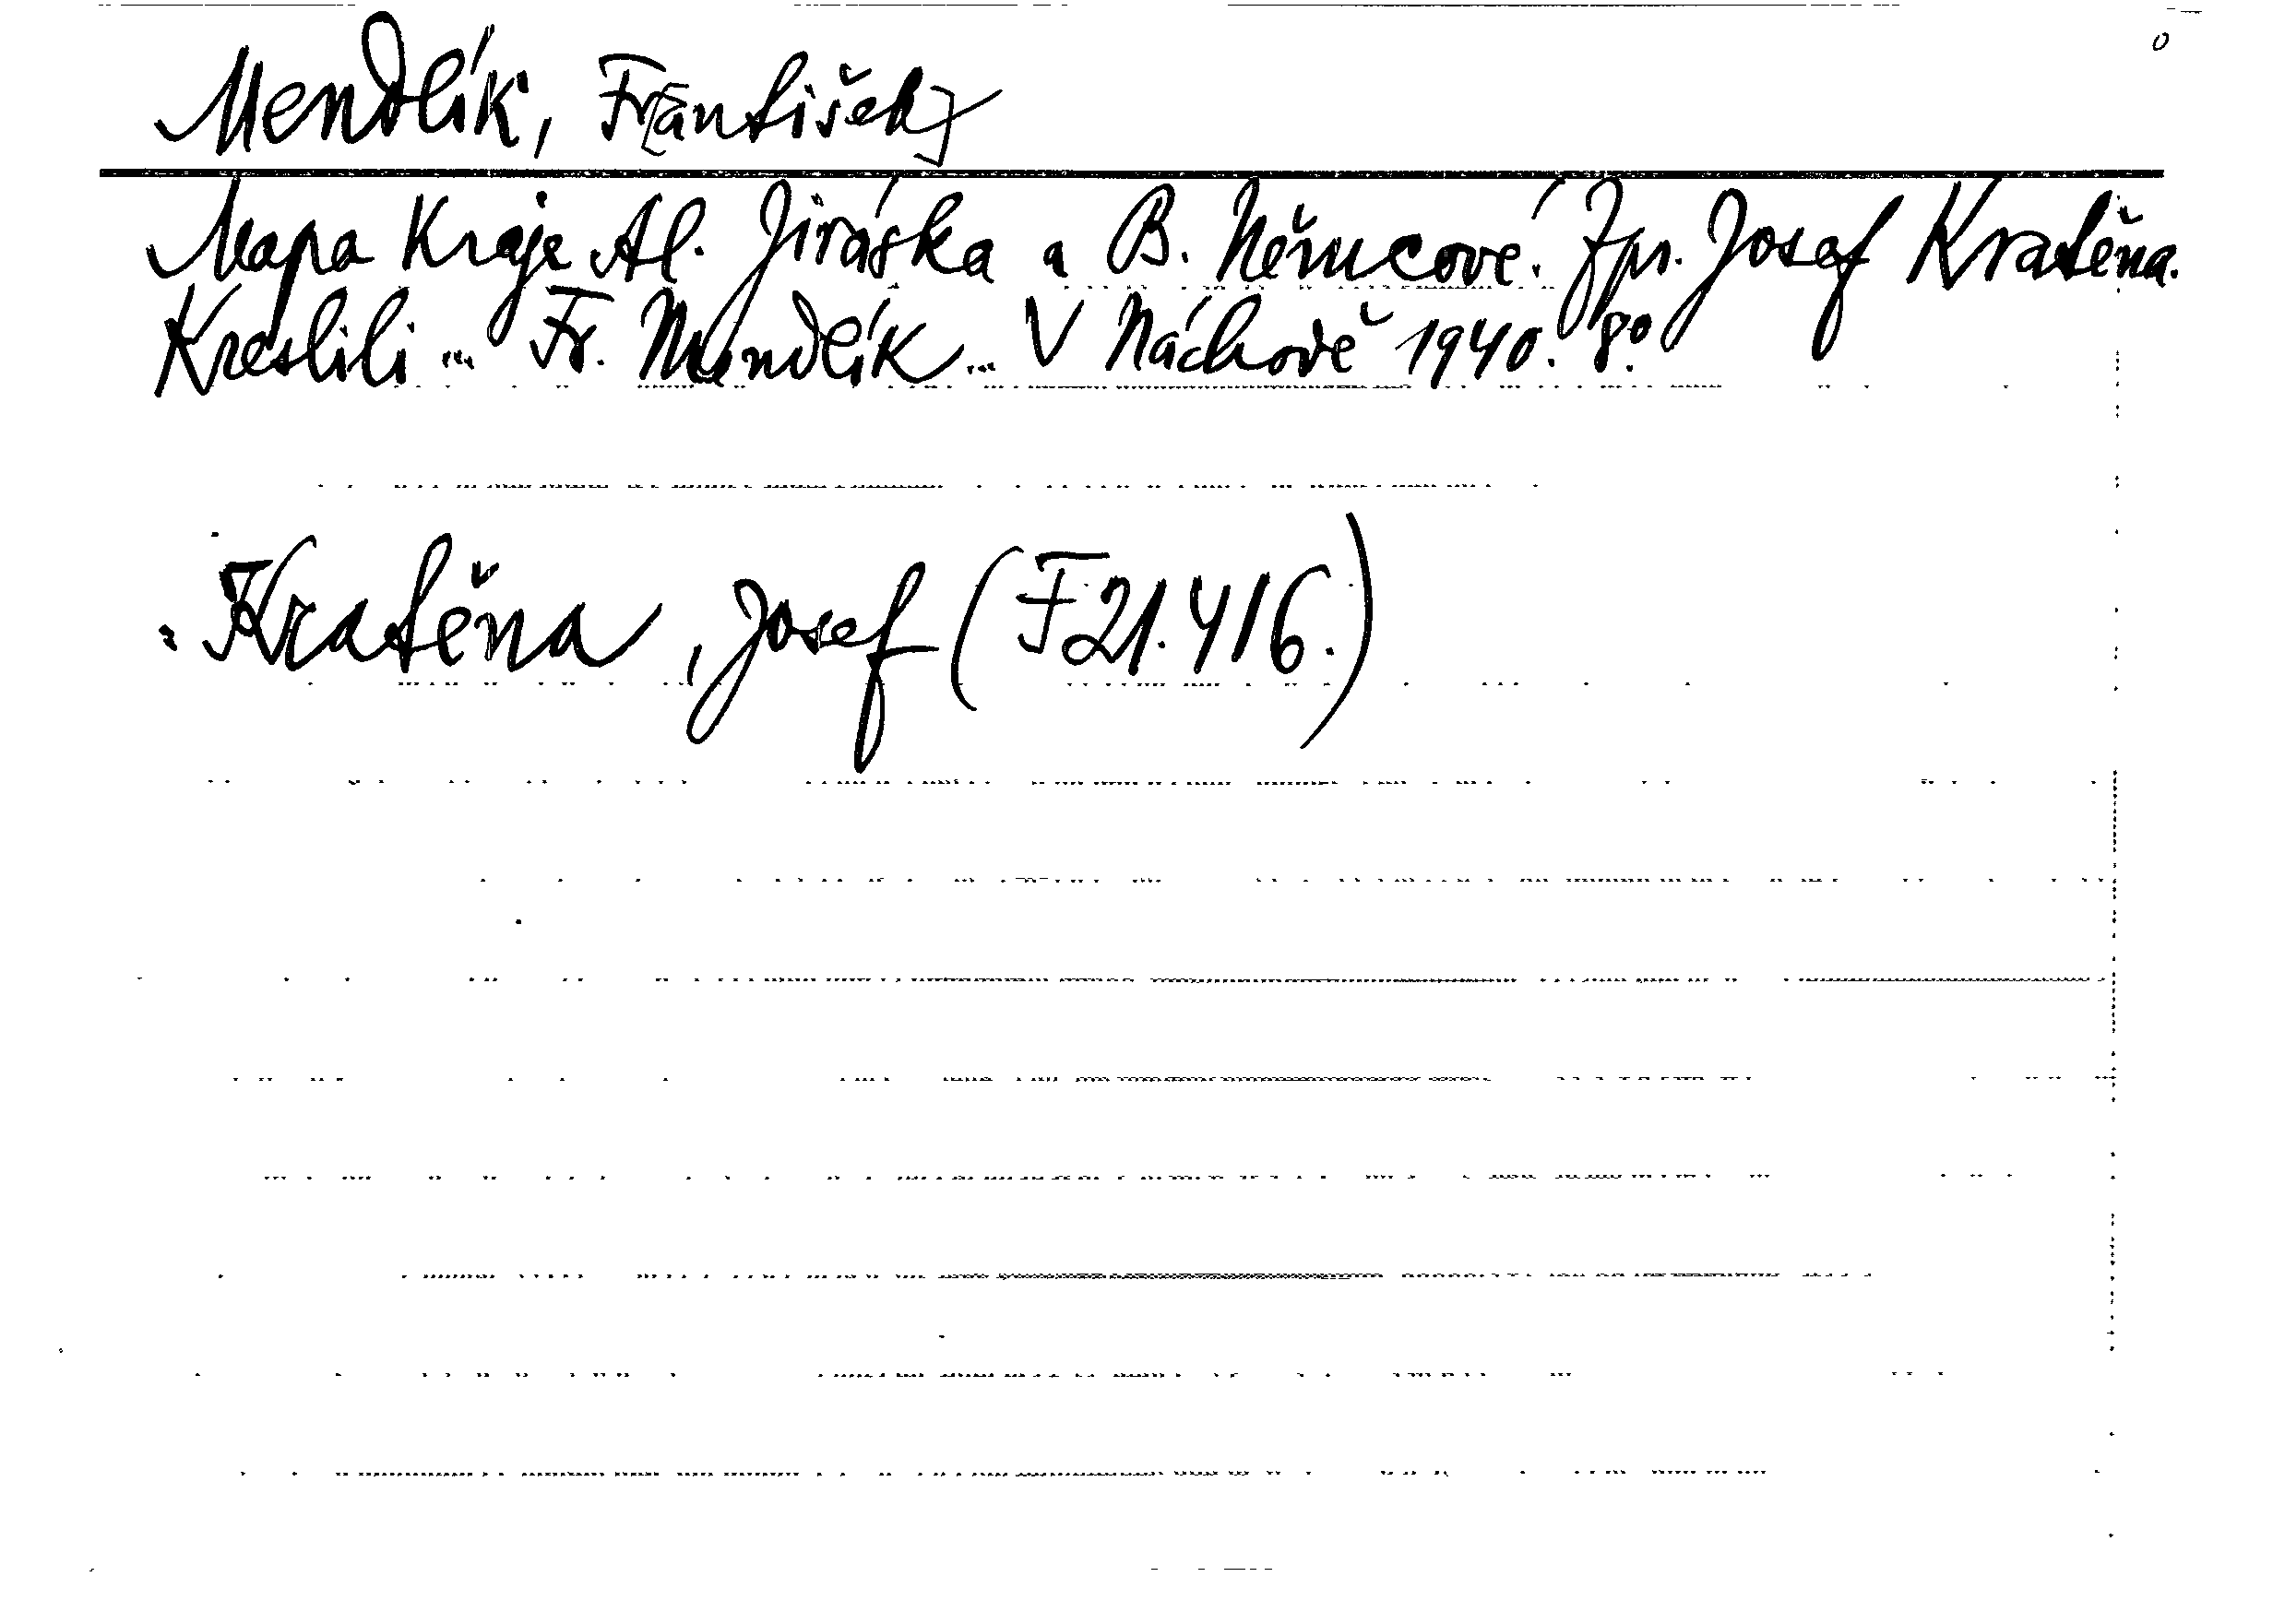 Mendlík, Fr[antišek]
Mapa kraje Al. Jiráska a B. Němcové. Zpr. Josef Kratěna.
Kreslili ... Fr. Mendlík ... V Náchodě 1940. 8°.
Kratěna, Josef (F21.416.)